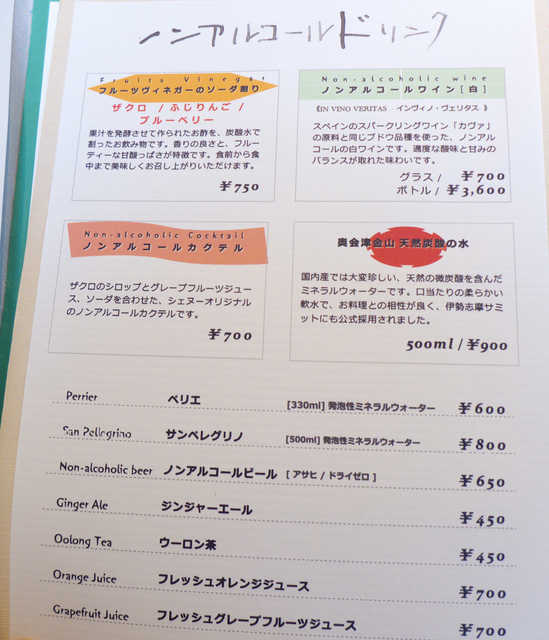 ノンアルコールドリンク
Fruits Vinegar
フルーツヴィネガーのソーダ割り
ザクロ / ふじりんご /
ブルーベリー
果汁を発酵させて作られたお酢を、炭酸水で
割ったお飲み物です。香りの良さと、フルー
ティーな甘酸っぱさが特徴です。食前から食
中まで美味しくお召し上がりいただけます。
¥750
Non-alcoholic wine
ノンアルコールワイン [白]
《IN VINO VERITAS インヴィノ・ヴェリタス 》
スペインのスパークリングワイン「カヴァ」
の原料と同じブドウ品種を使った、ノンアル
コールの白ワインです。適度な酸味と甘みの
バランスが取れた味わいです。
グラス / ¥700
ボトル / ¥3,600
Non-alcoholic Cocktail
ノンアルコールカクテル
ザクロのシロップとグレープフルーツジュー
ス、ソーダを合わせた、シェヌーオリジナル
のノンアルコールカクテルです。
¥700
奥会津金山 天然炭酸の水
国内産では大変珍しい、天然の微炭酸を含んだ
ミネラルウォーターです。口当たりの柔らかい
軟水で、お料理との相性が良く、伊勢志摩サ
ミットにも公式採用されました。
500ml / ¥900
Perrier ペリエ [330ml] 発泡性ミネラルウォーター ¥600
San Pellegrino サンペレグリノ [500ml] 発泡性ミネラルウォーター ¥800
Non-alcoholic beer ノンアルコールビール [ アサヒ / ドライゼロ ] ¥650
Ginger Ale ジンジャーエール ¥450
Oolong Tea ウーロン茶 ¥450
Orange Juice フレッシュオレンジジュース ¥700
Grapefruit Juice フレッシュグレープフルーツジュース ¥700